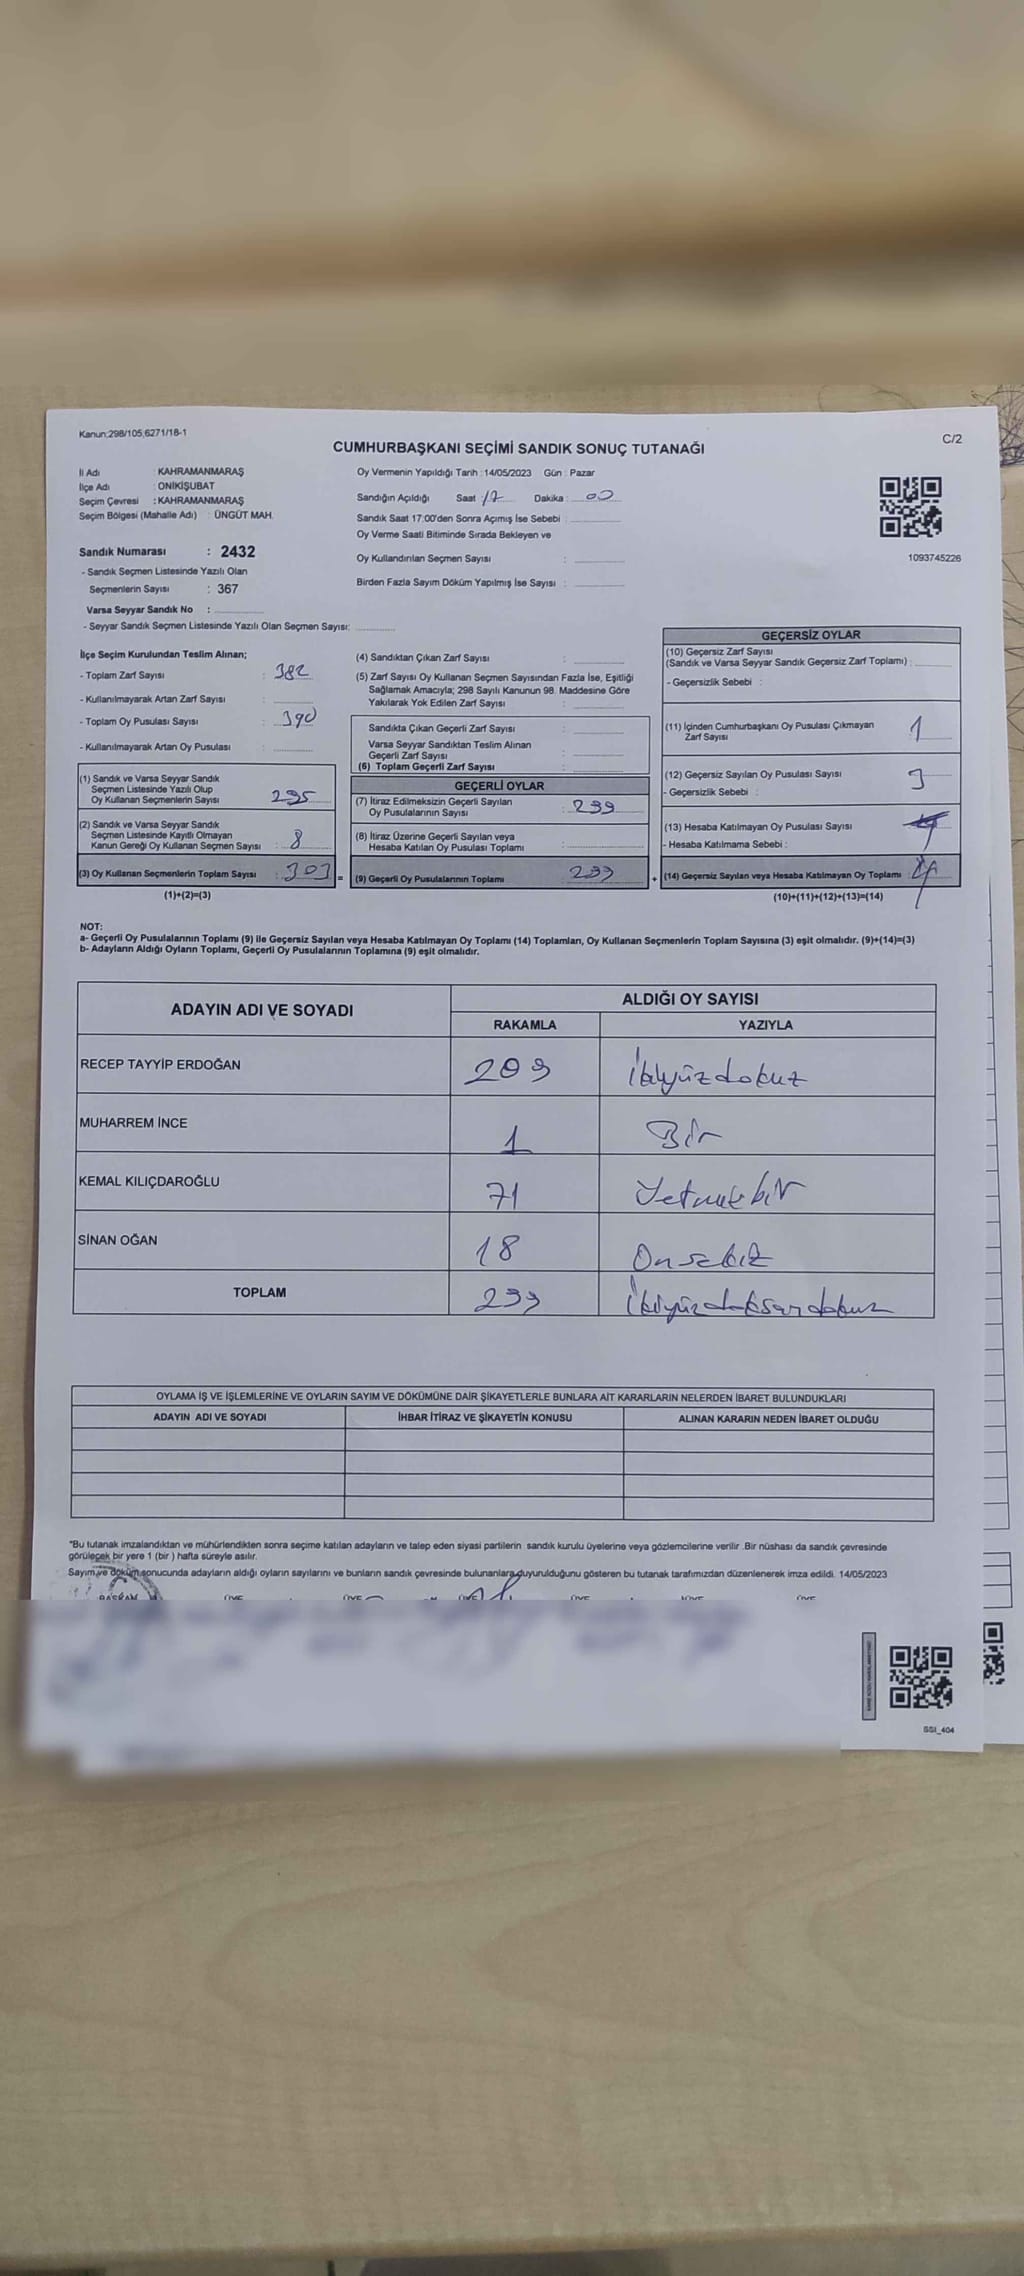 Kanun;298/105,6271/18-1
C/2
CUMHURBAŞKANI SEÇİMİ SANDIK SONUÇ TUTANAĞI
İl Adı : KAHRAMANMARAŞ
İlçe Adı : ONİKİŞUBAT
Seçim Çevresi : KAHRAMANMARAŞ
Seçim Bölgesi (Mahalle Adı) : ÜNGÜT MAH.
Sandık Numarası : 2432
- Sandık Seçmen Listesinde Yazılı Olan
Seçmenlerin Sayısı : 367
Varsa Seyyar Sandık No :
- Seyyar Sandık Seçmen Listesinde Yazılı Olan Seçmen Sayısı:
Oy Vermenin Yapıldığı Tarih :14/05/2023 Gün : Pazar
Sandığın Açıldığı Saat 17 Dakika : 00
Sandık Saat 17:00'den Sonra Açımış İse Sebebi :
Oy Verme Saati Bitiminde Sırada Bekleyen ve
Oy Kullandırılan Seçmen Sayısı :
Birden Fazla Sayım Döküm Yapılmış İse Sayısı :
1093745226
İlçe Seçim Kurulundan Teslim Alınan;
- Toplam Zarf Sayısı : 382
- Kullanılmayarak Artan Zarf Sayısı :
- Toplam Oy Pusulası Sayısı : 390
- Kullanılmayarak Artan Oy Pusulası :
(1) Sandık ve Varsa Seyyar Sandık
Seçmen Listesinde Yazılı Olup
Oy Kullanan Seçmenlerin Sayısı : 295
(2) Sandık ve Varsa Seyyar Sandık
Seçmen Listesinde Kayıtlı Olmayan
Kanun Gereği Oy Kullanan Seçmen Sayısı : 8
(3) Oy Kullanan Seçmenlerin Toplam Sayısı : 303 =
(1)+(2)=(3)
(4) Sandıktan Çıkan Zarf Sayısı :
(5) Zarf Sayısı Oy Kullanan Seçmen Sayısından Fazla İse, Eşitliği
Sağlamak Amacıyla; 298 Sayılı Kanunun 98. Maddesine Göre
Yakılarak Yok Edilen Zarf Sayısı :
Sandıkta Çıkan Geçerli Zarf Sayısı :
Varsa Seyyar Sandıktan Teslim Alınan
Geçerli Zarf Sayısı :
(6) Toplam Geçerli Zarf Sayısı :
GEÇERLİ OYLAR
(7) İtiraz Edilmeksizin Geçerli Sayılan
Oy Pusulalarının Sayısı : 299
(8) İtiraz Üzerine Geçerli Sayılan veya
Hesaba Katılan Oy Pusulası Toplamı :
(9) Geçerli Oy Pusulalarının Toplamı : 299 +
GEÇERSİZ OYLAR
(10) Geçersiz Zarf Sayısı
(Sandık ve Varsa Seyyar Sandık Geçersiz Zarf Toplamı) :
- Geçersizlik Sebebi :
(11) İçinden Cumhurbaşkanı Oy Pusulası Çıkmayan
Zarf Sayısı : 1
(12) Geçersiz Sayılan Oy Pusulası Sayısı : 3
- Geçersizlik Sebebi :
(13) Hesaba Katılmayan Oy Pusulası Sayısı :
- Hesaba Katılmama Sebebi :
(14) Geçersiz Sayılan veya Hesaba Katılmayan Oy Toplamı : 4
(10)+(11)+(12)+(13)=(14)
NOT:
a- Geçerli Oy Pusulalarının Toplamı (9) ile Geçersiz Sayılan veya Hesaba Katılmayan Oy Toplamı (14) Toplamları, Oy Kullanan Seçmenlerin Toplam Sayısına (3) eşit olmalıdır. (9)+(14)=(3)
b- Adayların Aldığı Oyların Toplamı, Geçerli Oy Pusulalarının Toplamına (9) eşit olmalıdır.
ADAYIN ADI VE SOYADI ALDIĞI OY SAYISI
RAKAMLA YAZIYLA
RECEP TAYYİP ERDOĞAN 209 ikiyüzdokuz
MUHARREM İNCE 1 Bir
KEMAL KILIÇDAROĞLU 71 Yetmişbir
SİNAN OĞAN 18 Onsekiz
TOPLAM 299 ikiyüzdoksandokuz
OYLAMA İŞ VE İŞLEMLERİNE VE OYLARIN SAYIM VE DÖKÜMÜNE DAİR ŞİKAYETLERLE BUNLARA AİT KARARLARIN NELERDEN İBARET BULUNDUKLARI
ADAYIN ADI VE SOYADI İHBAR İTİRAZ VE ŞİKAYETİN KONUSU ALINAN KARARIN NEDEN İBARET OLDUĞU
"Bu tutanak imzalandıktan ve mühürlendikten sonra seçime katılan adayların ve talep eden siyasi partilerin sandık kurulu üyelerine veya gözlemcilerine verilir .Bir nüshası da sandık çevresinde
görülecek bir yere 1 (bir ) hafta süreyle asılır.
Sayım ve döküm sonucunda adayların aldığı oyların sayılarını ve bunların sandık çevresinde bulunanlara duyurulduğunu gösteren bu tutanak tarafımızdan düzenlenerek imza edildi. 14/05/2023
BAŞKAN ÜYE ÜYE ÜYE ÜYE ÜYE ÜYE
SSI_404